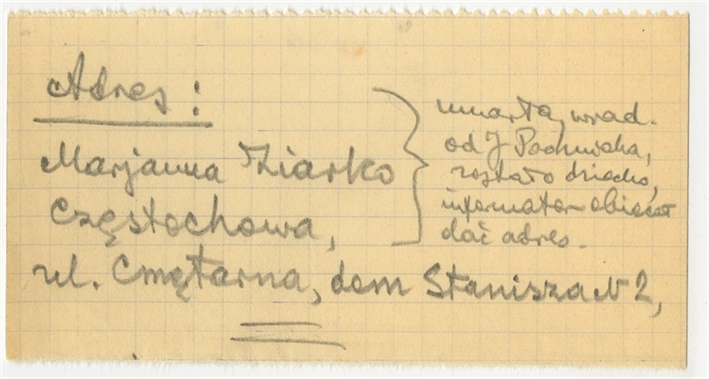 Adres:
Marjanna Ziarko
Częstochowa,
ul. Cmętarna, dom Stanisza N 2,
umarła, wiad.
od J
zostało dziecko,
informator obiecał
dać adres.